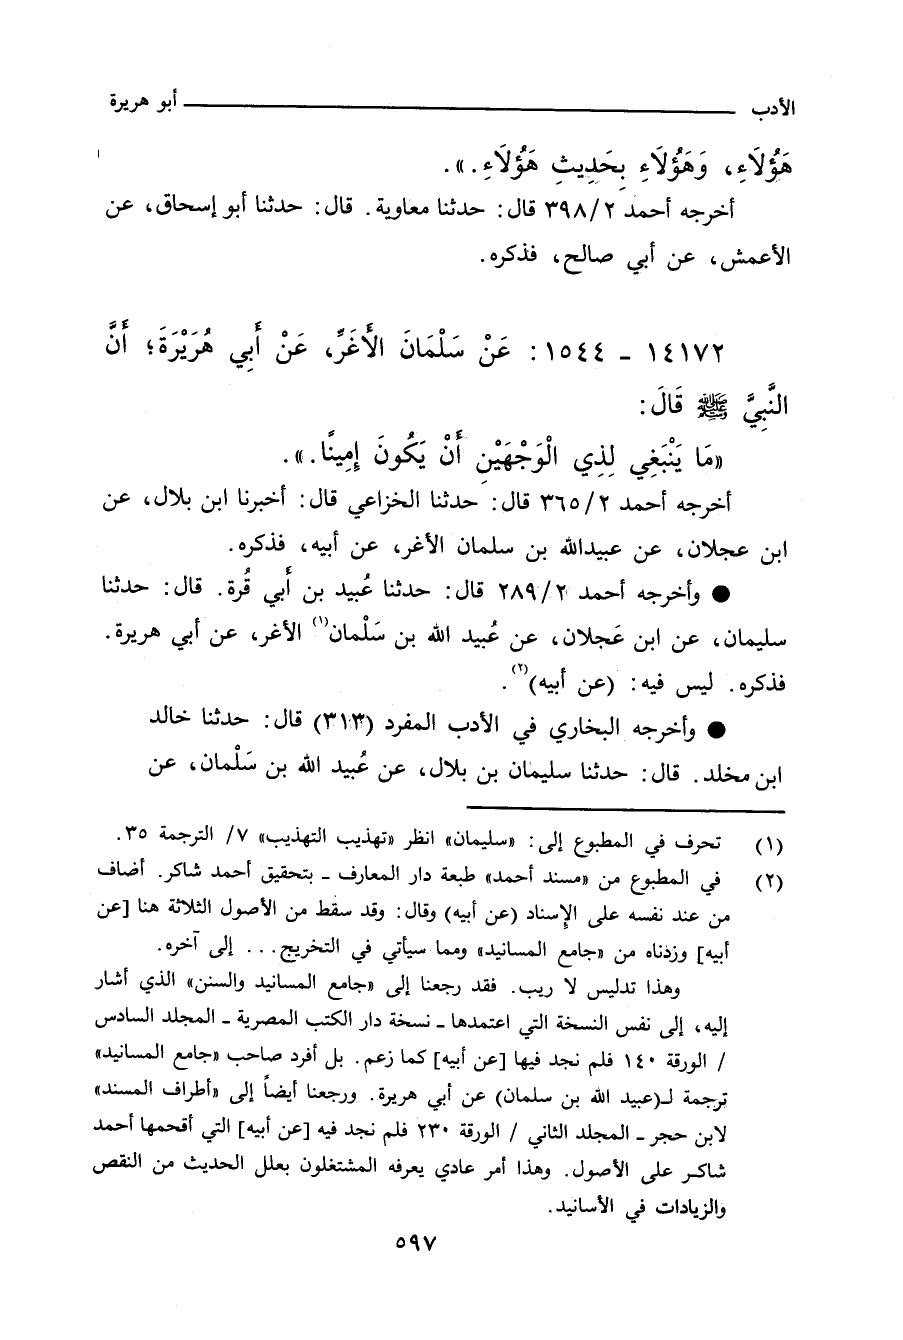 الأدب أبو هريرة
هَؤُلَاءِ، وَهَؤُلَاءِ بِحَدِيثِ هَؤُلَاءِ.».
أخرجه أحمد ٣٩٨/٢ قال: حدثنا معاوية. قال: حدثنا أبو إسحاق، عن
الأعمش، عن أبي صالح، فذكره.
١٤١٧٢ - ١٥٤٤: عَنْ سَلْمَانَ الأَغَرِّ، عَنْ أَبِي هُرَيْرَةَ؛ أَنَّ
النَّبِيَّ ﷺ قَالَ:
«مَا يَنْبَغِي لِذِي الْوَجْهَيْنِ أَنْ يَكُونَ إِمِينًا.».
أخرجه أحمد ٣٦٥/٢ قال: حدثنا الخزاعي قال: أخبرنا ابن بلال، عن
ابن عجلان، عن عبيدالله بن سلمان الأغر، عن أبيه، فذكره.
● وأخرجه أحمد ٢٨٩/٢ قال: حدثنا عُبيد بن أَبي قُرة. قال: حدثنا
سليمان، عن ابن عَجلان، عن عُبيد الله بن سَلْمان(١) الأغر، عن أبي هريرة.
فذكره. ليس فيه: (عن أبيه)(٢).
● وأخرجه البخاري في الأدب المفرد (٣١٣) قال: حدثنا خالد
ابن مخلد. قال: حدثنا سليمان بن بلال، عن عُبيد الله بن سَلْمان، عن
(١) تحرف في المطبوع إلى: «سليمان» انظر «تهذيب التهذيب» ٧/ الترجمة ٣٥.
(٢) في المطبوع من «مسند أحمد» طبعة دار المعارف - بتحقيق أحمد شاكر. أضاف
من عند نفسه على الإسناد (عن أبيه) وقال: وقد سقط من الأصول الثلاثة هنا [عن
أبيه] وزدناه من «جامع المسانيد» ومما سيأتي في التخريج... إلى آخره.
وهذا تدليس لا ريب. فقد رجعنا إلى «جامع المسانيد والسنن» الذي أشار
إليه، إلى نفس النسخة التي اعتمدها - نسخة دار الكتب المصرية - المجلد السادس
/ الورقة ١٤٠ فلم نجد فيها [عن أبيه] كما زعم. بل أفرد صاحب «جامع المسانيد»
ترجمة لـ(عبيد الله بن سلمان) عن أبي هريرة. ورجعنا أيضاً إلى «أطراف المسند»
لابن حجر - المجلد الثاني / الورقة ٢٣٠ فلم نجد فيه [عن أبيه] التي أقحمها أحمد
شاكر على الأصول. وهذا أمر عادي يعرفه المشتغلون بعلل الحديث من النقص
والزيادات في الأسانيد.
٥٩٧